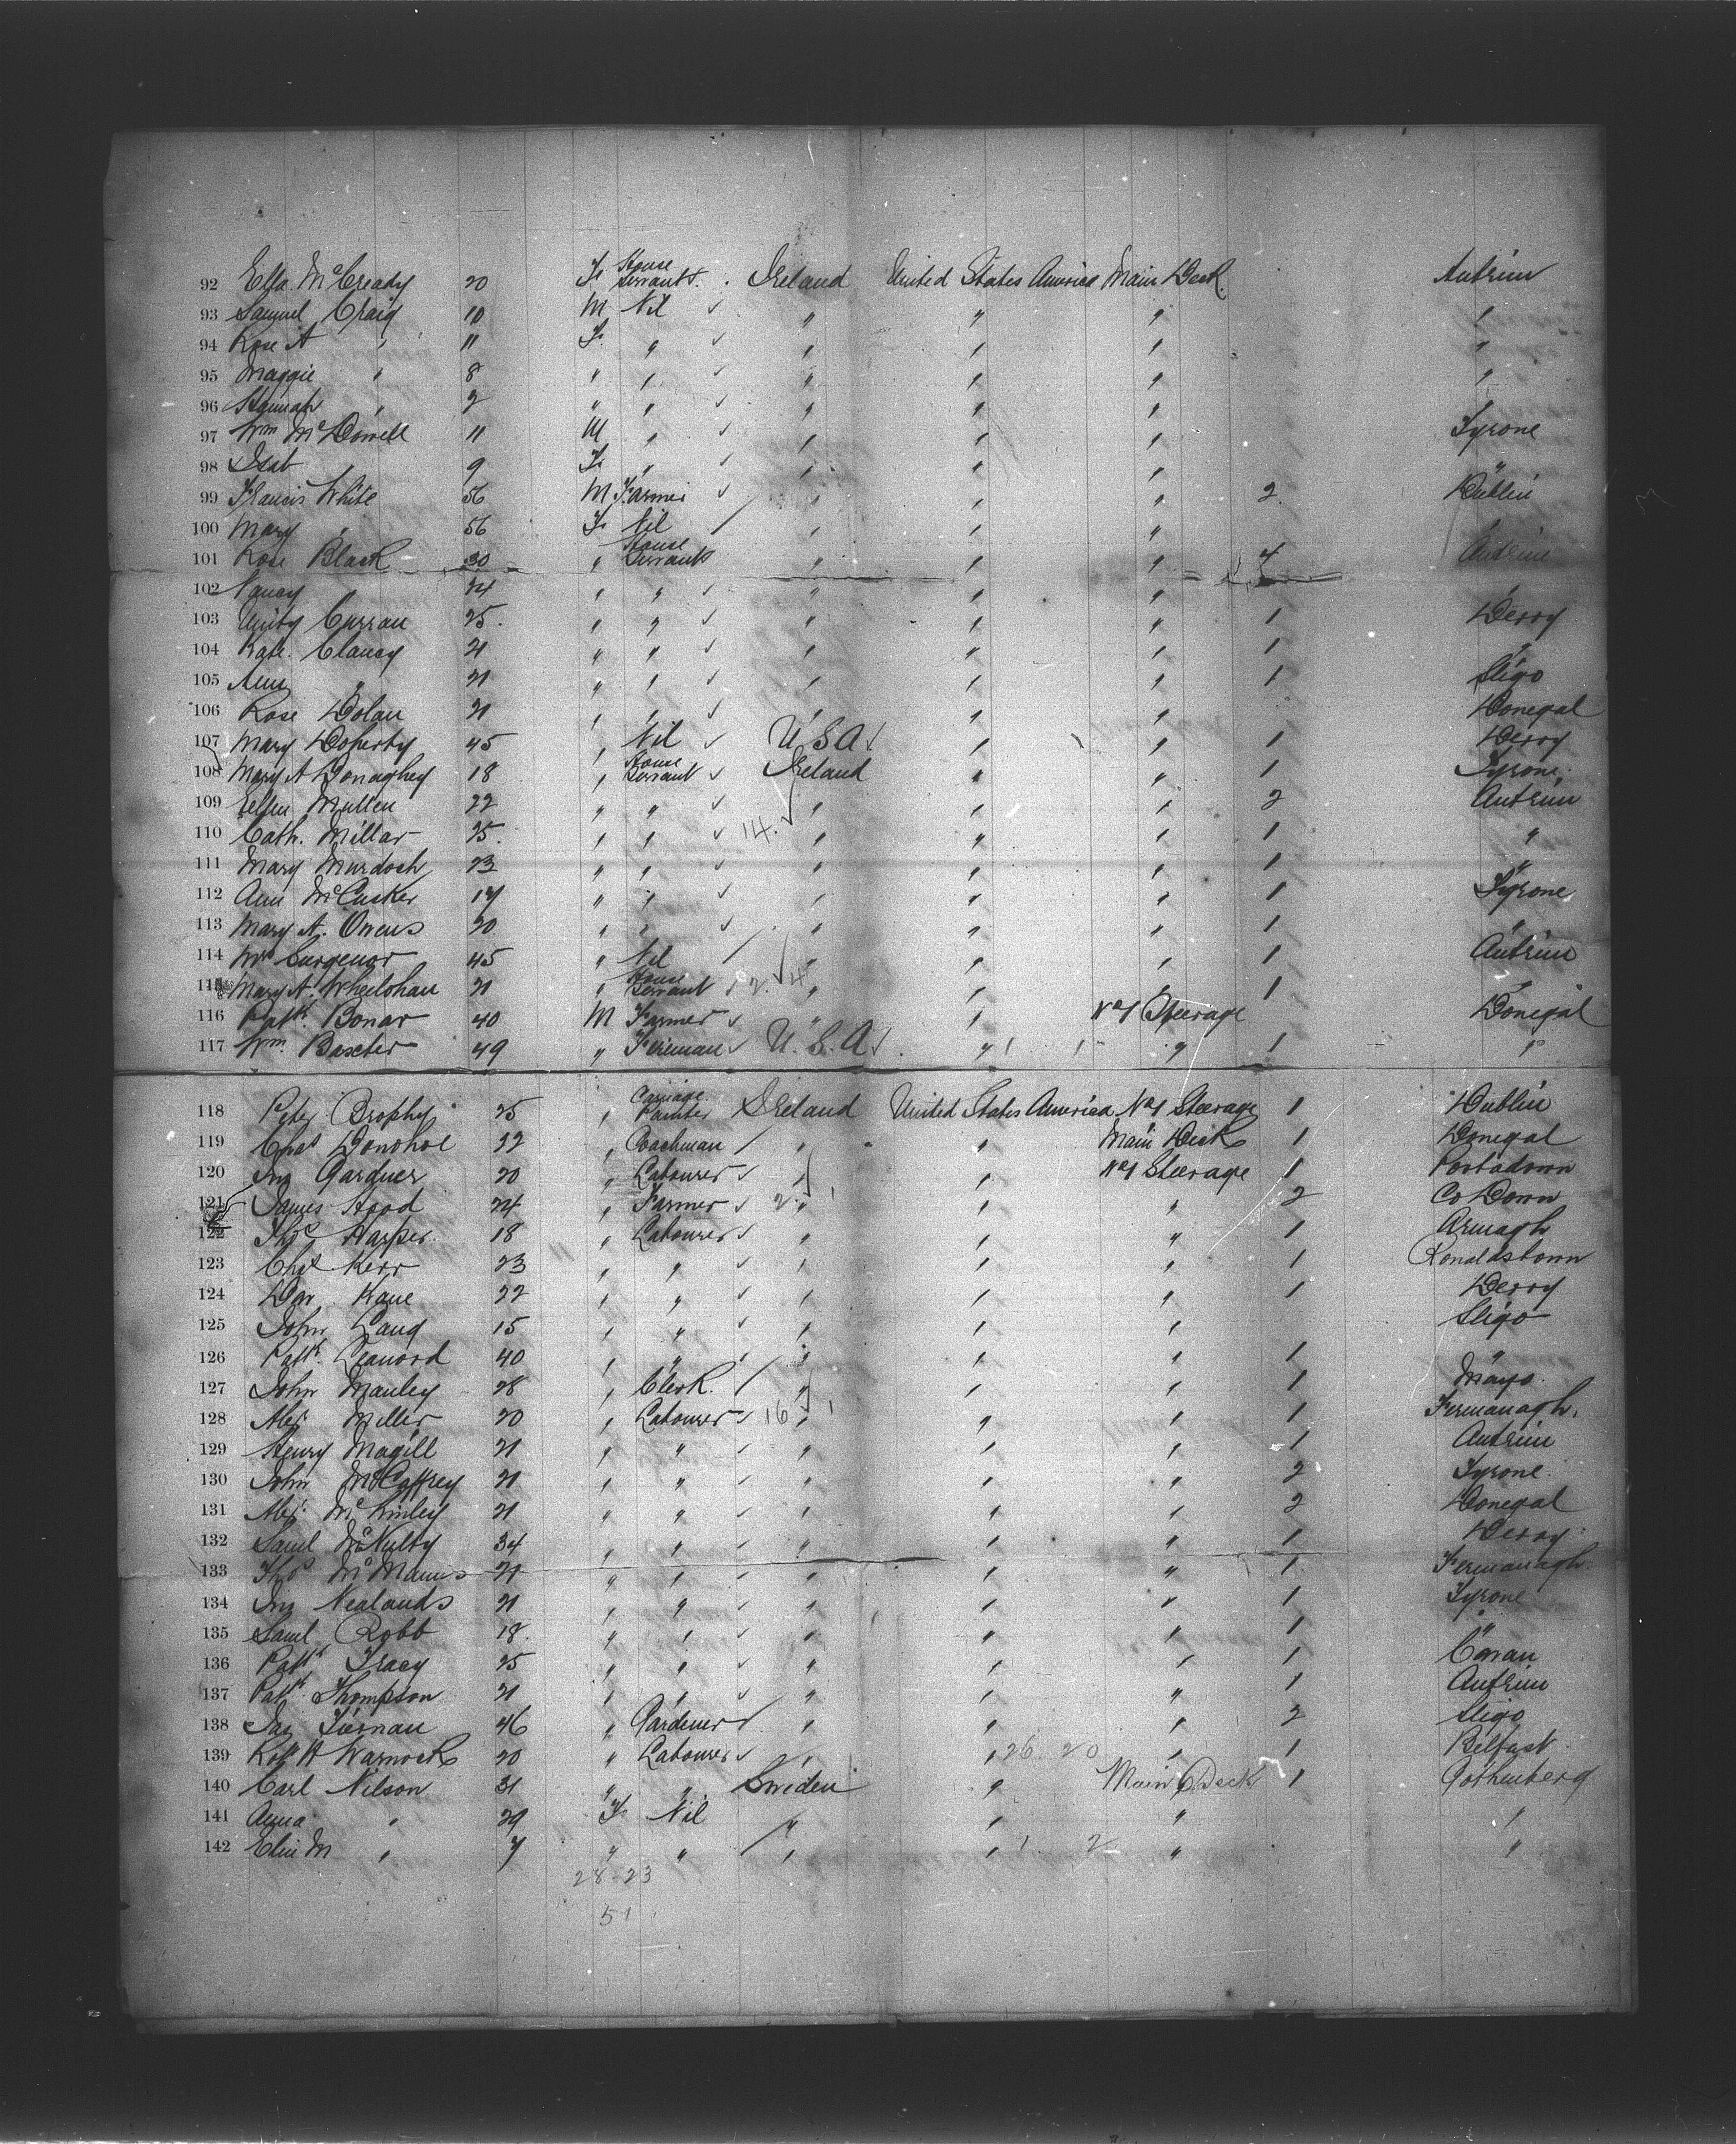 92 Ella McCready 20 F House Servant Ireland United States America Main Deck Antrim
93 Samuel Craig 10 M Nil " " " "
94 Rose A " 11 F " " " " "
95 Maggie " 8 " " " " " "
96 Hannah " 2 " " " " "
97 Wm McDowell 11 M " " " " Tyrone
98 Isab " 9 F " " " " "
99 Francis White 56 M Farmer " " " 2 Dublin
100 Mary " 56 F Nil " " "
101 Rose Black 30 " House Servant " " " 4 Antrim
102 Nancy 24 " " " " "
103 Unity Curran 25 " " " " " 1 Derry
104 Kate Clancy 21 " " " " " 1 "
105 Ann " 21 " " " " " 1 Sligo
106 Rose Dolan 21 " " " " " Donegal
107 Mary Doherty 45 " Nil U S A " " 1 Derry
108 Mary A Donaghey 18 " House Servant Ireland " " 1 Tyrone
109 Ellen Mullen 22 " " " " " 2 Antrim
110 Cath. Millar 25 " " 14 " " " 1 "
111 Mary Murdoch 23 " " " " " 1 "
112 Ann McCusker 17 " " " " " 1 Tyrone
113 Mary A. Owens 20 " " " " " 1 "
114 Mrs Surgenor 45 " Nil " " " 1 Antrim
115 Mary A. Wheelohan 21 " House Servant 2. 4 " " " 1 "
116 Patk. Bonar 40 M Farmer " " No 1 Steerage Donegal
117 Wm. Baxter 49 " Fireman U. S. A " 1 1 " 1 "
118 Peter Brophy 25 " Carriage Painter Ireland United States America No 1 Steerage 1 Dublin
119 Chas Donohoe 22 " Coachman " " Main Deck 1 Donegal
120 Jno Gardner 20 " Labourer " " No 1 Steerage 1 Portadown
121 James Hood 24 " Farmer 2 " 1 " " 2 Co Down
122 Thos Harper 18 " Labourer " " " 1 Armagh
123 Chas Kerr 23 " " " " " 1 Ronaldstown
124 Dan Kane 22 " " " " " 1 Derry
125 John Lang 15 " " " " " Sligo
126 Patk. Leanord 40 " " " " " 1 "
127 John Manley 28 " Clerk " " " 1 Mayo
128 Alex Miller 20 " Labourer 16 " 1 " " 1 Fermanagh
129 Henry Magill 21 " " " " " 1 Antrim
130 John McCaffrey 21 " " " " " 2 Tyrone
131 Alex. McKinley 21 " " " " " 2 Donegal
132 Saml McNulty 34 " " " " " 1 Derry
133 Thos McManus 21 " " " " " 1 Fermanagh
134 Jno Nealands 21 " " " " " 1 Tyrone
135 Saml Robb 18 " " " " " 1 "
136 Patk Tracy 25 " " " " " 1 Cavan
137 Patk Thompson 21 " " " " " 1 Antrim
138 Jas Tiernan 46 " Gardener " " " 2 Sligo
139 Robt H Warnock 20 " Labourer " " 26 20 " 1 Belfast
140 Carl Nilson 31 " " Sweden " Main Deck 1 Gothenberg
141 Anna " 29 F Nil " " " "
142 Elin M " 7 " " " " 1 2 " "
28 - 23
51